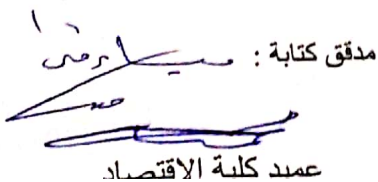 مدقق كتابة :
عميد كلية الاقتصاد